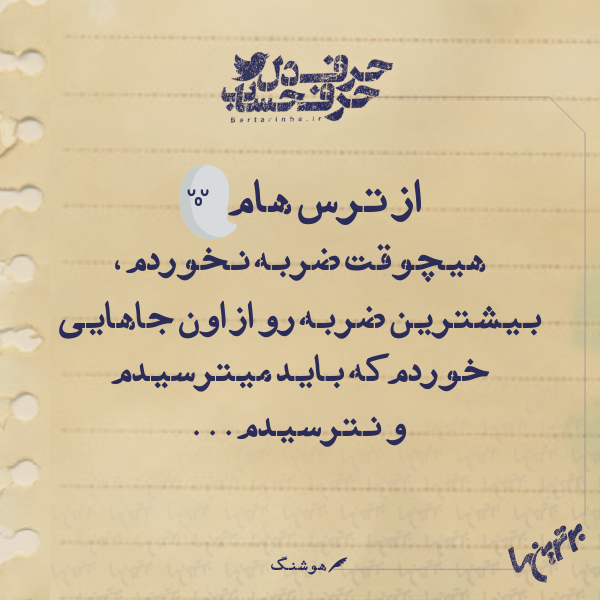 حرف دل
حرف حساب
Bartarinha.ir
از ترس هام
هیچوقت ضربه نخوردم،
بیشترین ضربه رو از اون جاهایی
خوردم که باید میترسیدم
و نترسیدم...
هوشنگ
برترین‌ها